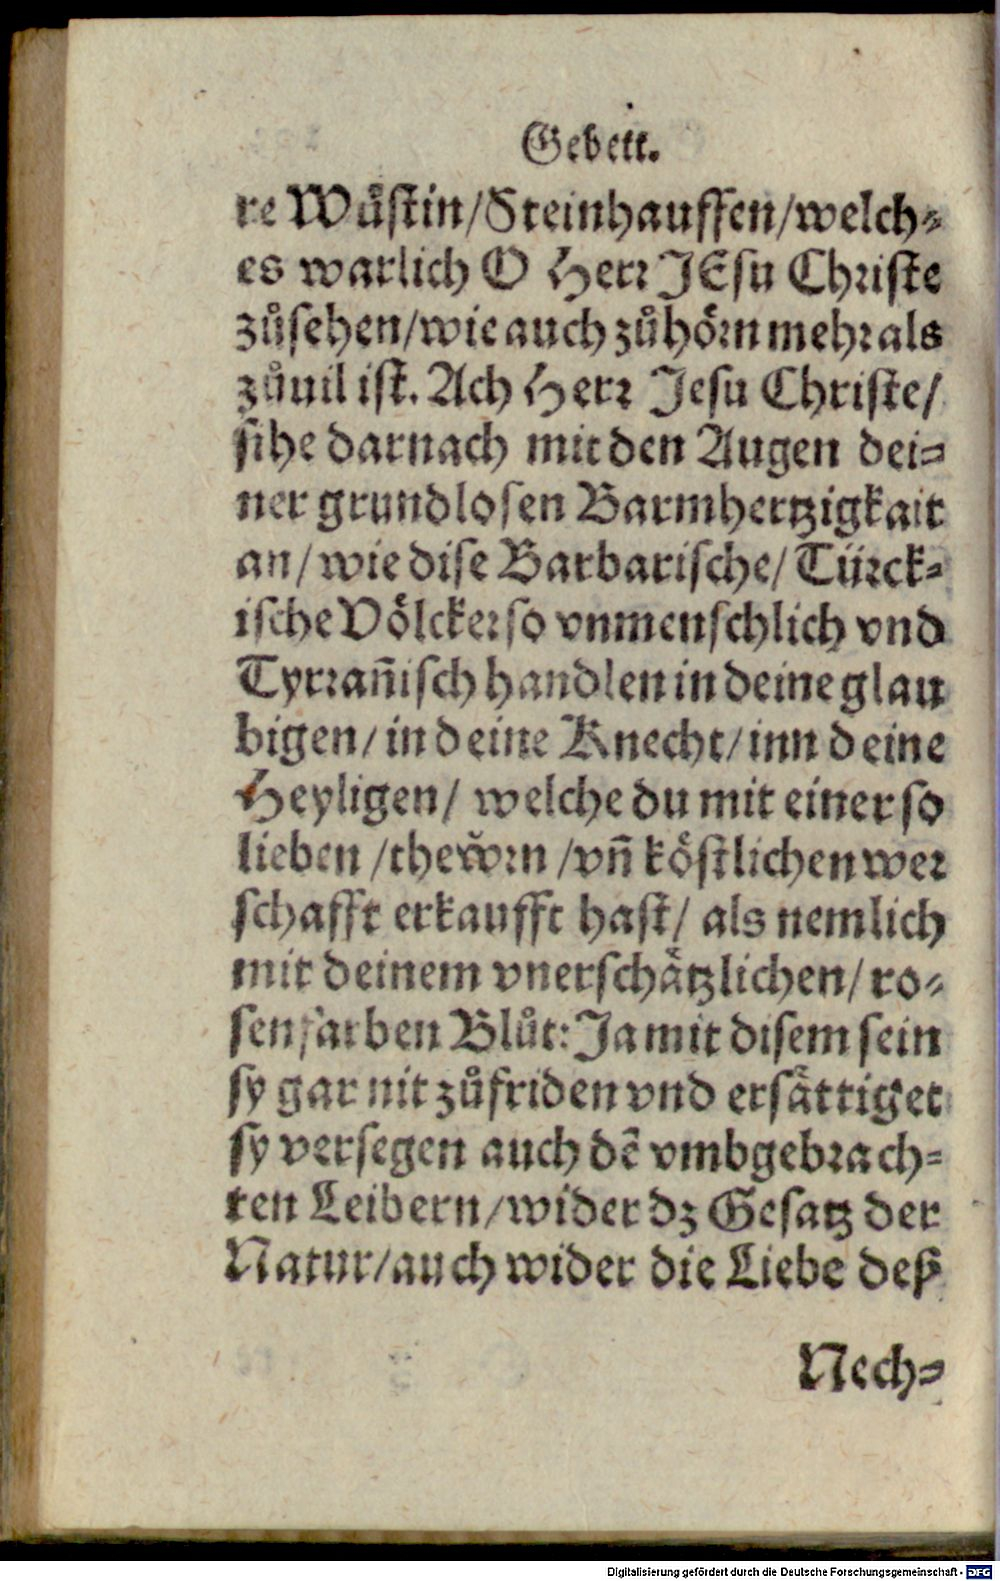 Gebett.
re Wuͤſtin/Steinhauffen/welch⸗
es warlich O Herr JEſu Chriſte
zuͦſehen/wie auch zuͦhoͤrn mehr als
zuͦuil iſt. Ach Herr Jeſu Chriſte/
ſihe darnach mit den Augen dei⸗
ner grundloſen Barmhertzigkait
an/ wie diſe Barbariſche/ Tuͤrck⸗
iſche Voͤlcker ſo vnmenſchlich vnd
Tyrrañiſch handlen in deine glau
bigen/ in deine Knecht/ inn deine
Heyligen/ welche du mit einer ſo
lieben /thewͤrn /vñ koͤſtlichen wer
ſchafft erkaufft haſt/ als nemlich
mit deinem vnerſchaͤtzlichen/ ro⸗
ſenfarben Bluͦt: Ja mit diſem ſein
ſy gar nit zuͦfriden vnd erſaͤttiget
ſy verſegen auch dẽ vmbgebrach⸗
ten Leibern/wider dz Geſatz der
Natur/auch wider die Liebe deß
Nech⸗
Digitalisierung gefördert durch die Deutsche Forschungsgemeinschaft - DFG